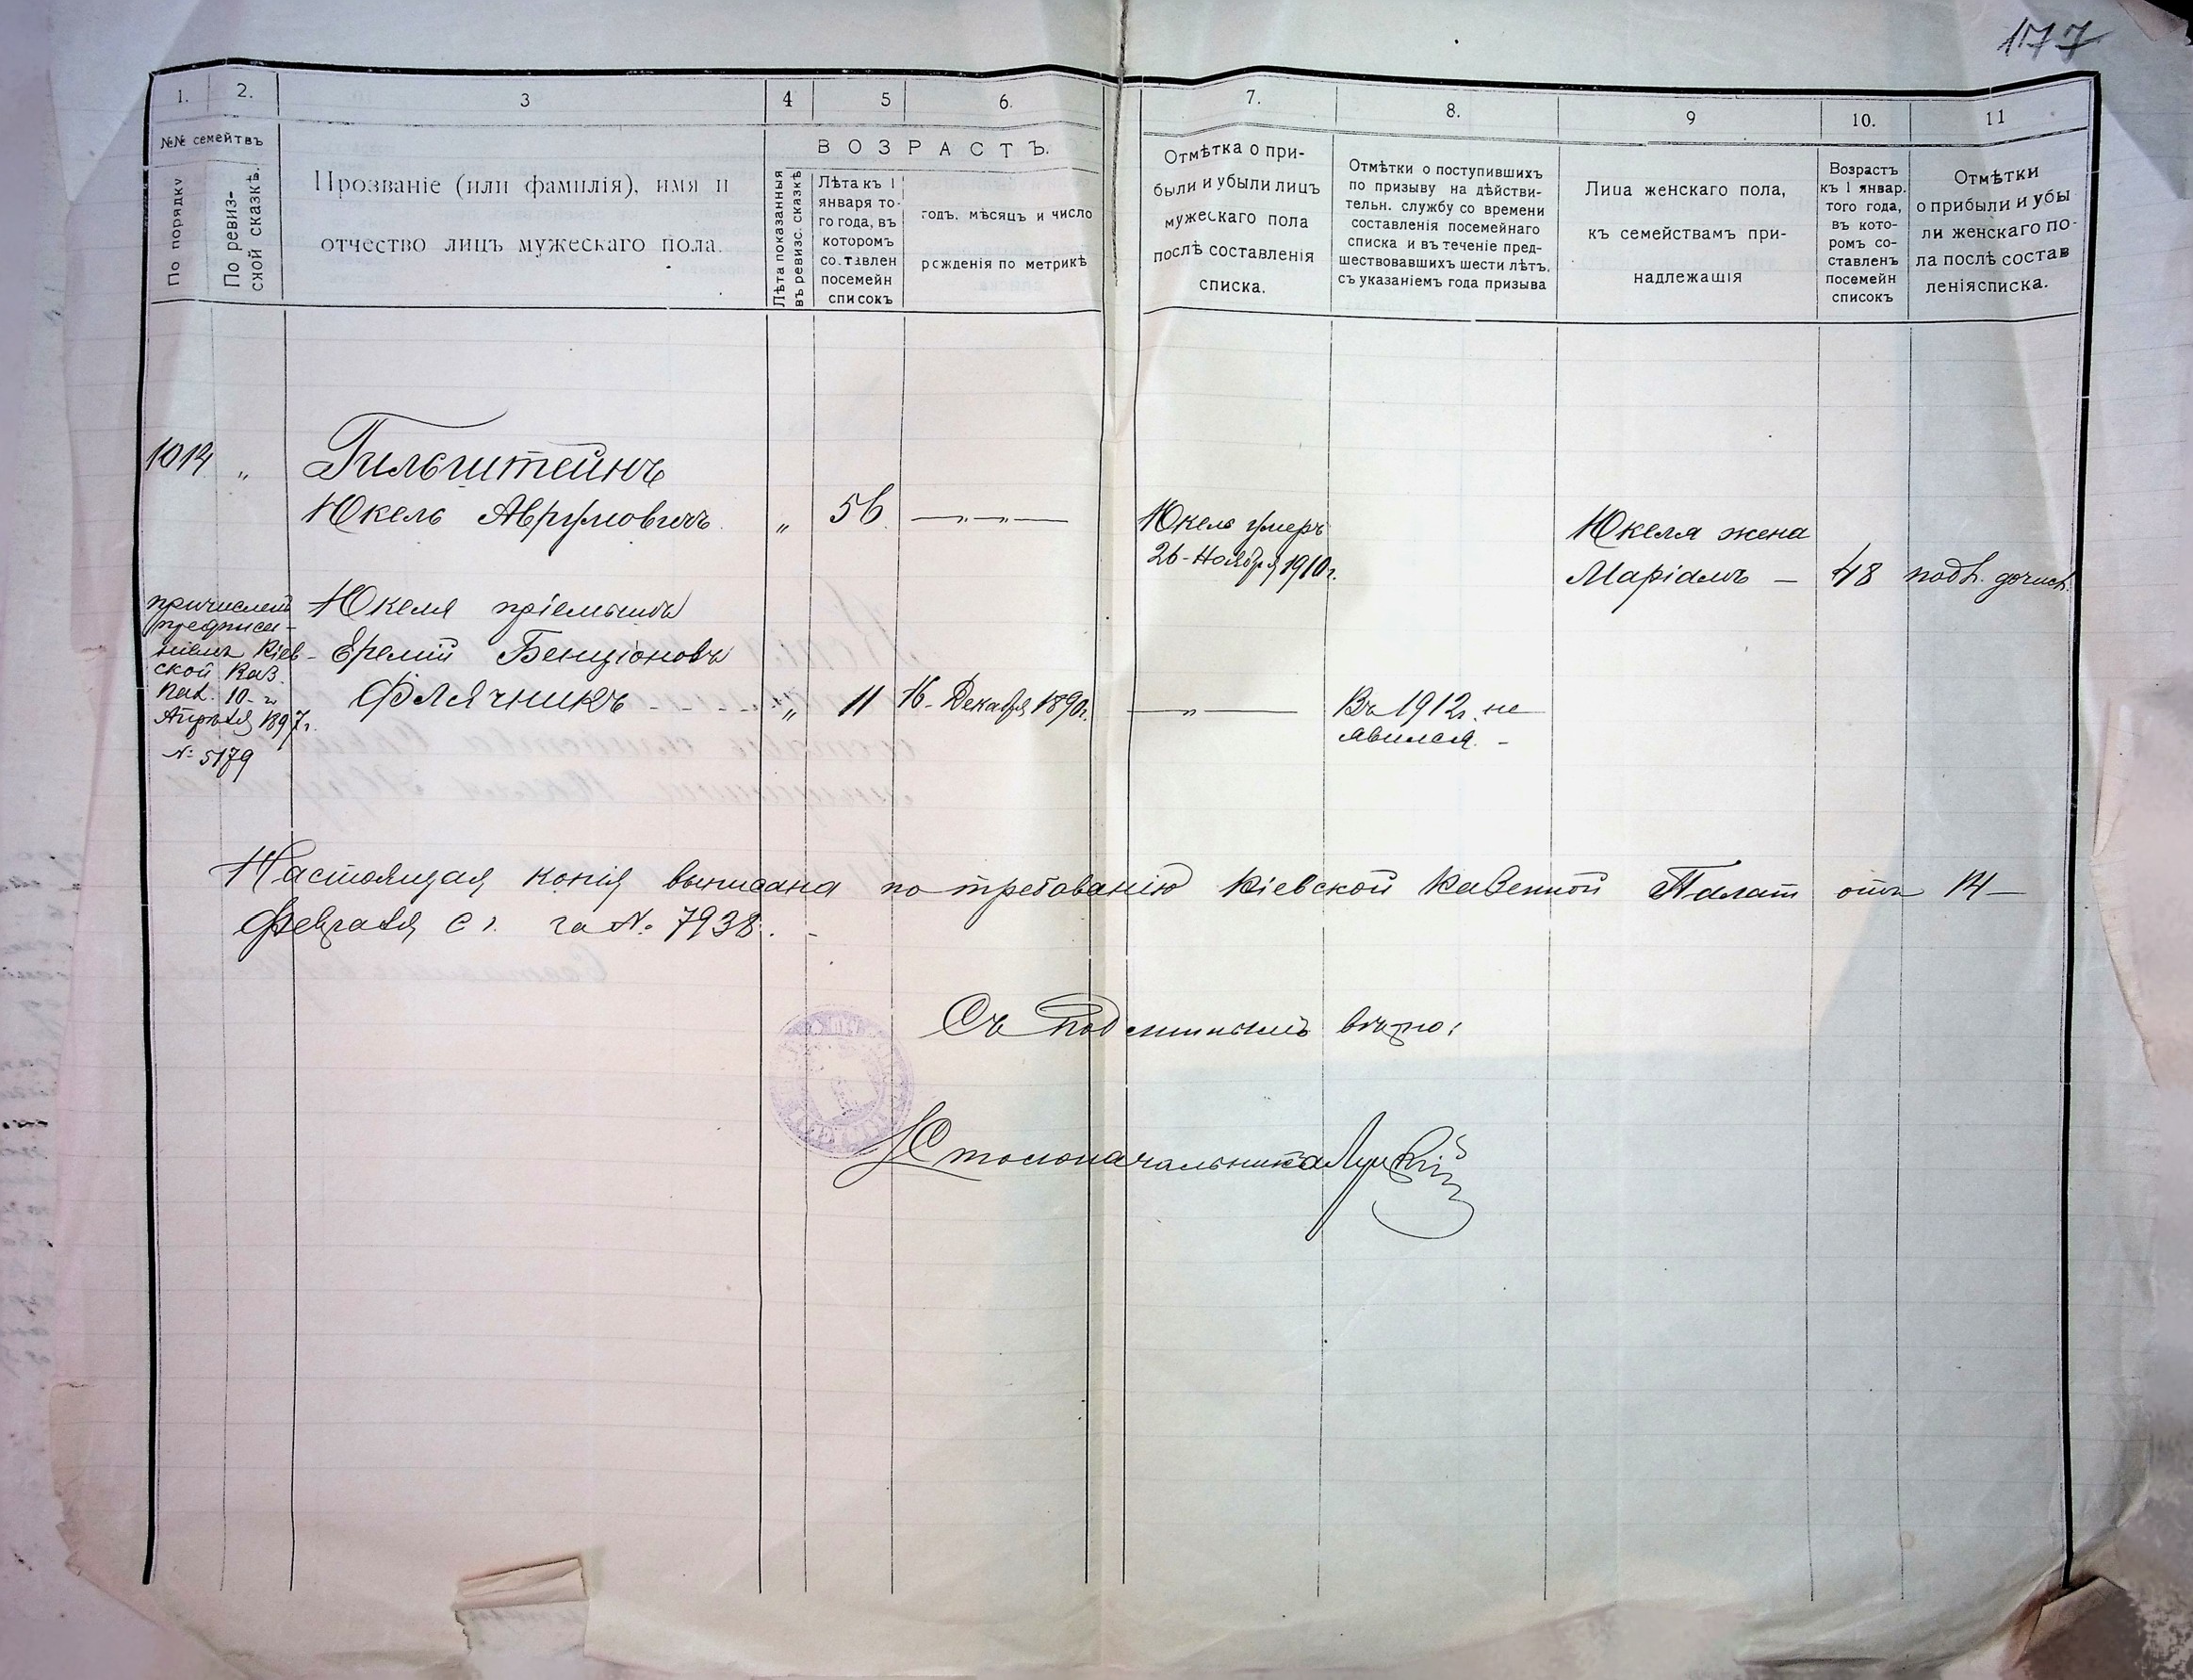 177
1.
2.
3
4
5
6.
7.
8.
9
10.
11
№№ семействъ
По порядку
По ревиз-
ской сказкѣ.
Прозваніе (или фамилія), имя и
отчество лицъ мужескаго пола.
ВОЗРАСТЪ.
Лѣта показанныя
въ ревизс. сказкѣ
Лѣта къ 1
января то-
го года, въ
которомъ
составлен
посемейн
списокъ
годъ, мѣсяцъ и число
рожденія по метрикѣ
Отмѣтка о при-
были и убыли лицъ
мужескаго пола
послѣ составленія
списка.
Отмѣтки о поступившихъ
по призыву на дѣйстви-
тельн. службу со времени
составленія посемейнаго
списка и въ теченіе пред-
шествовавшихъ шести лѣтъ,
съ указаніемъ года призыва
Лица женскаго пола,
къ семействамъ при-
надлежащія
Возрастъ
къ 1 январ.
того года,
въ кото-
ромъ со-
ставленъ
посемейн
списокъ
Отмѣтки
о прибыли и убы
ли женскаго по-
ла послѣ состав
ленія списка.
1014 „ Гильштейнъ
Юкель Аврумовичъ „ 56 —„—„—
Юкель умеръ
26-Ноября 1910г.
Юкеля жена
Маріамъ — 48
причислен
предписа-
ніемъ Кіев-
ской Каз.
Пал. 10-го
Апрѣля 1897г.
№ 5179
Юкеля пріемышъ
Еремій Бенціоновъ
Флячникъ „ 11 16-Декабря 1890г. —„—
Въ 1912г. не
явился. -
Настоящая копія выписана по требованію Кіевской Казенной Палат отъ 14—
Февраля с г. за №. 7938. -
Съ подлиннымъ вѣрно:
Столоначальника